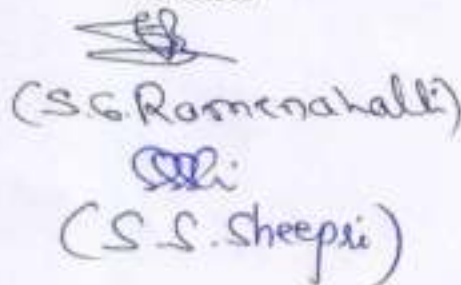 (S.G. Ramenahalli)
(S.S. Sheepri)